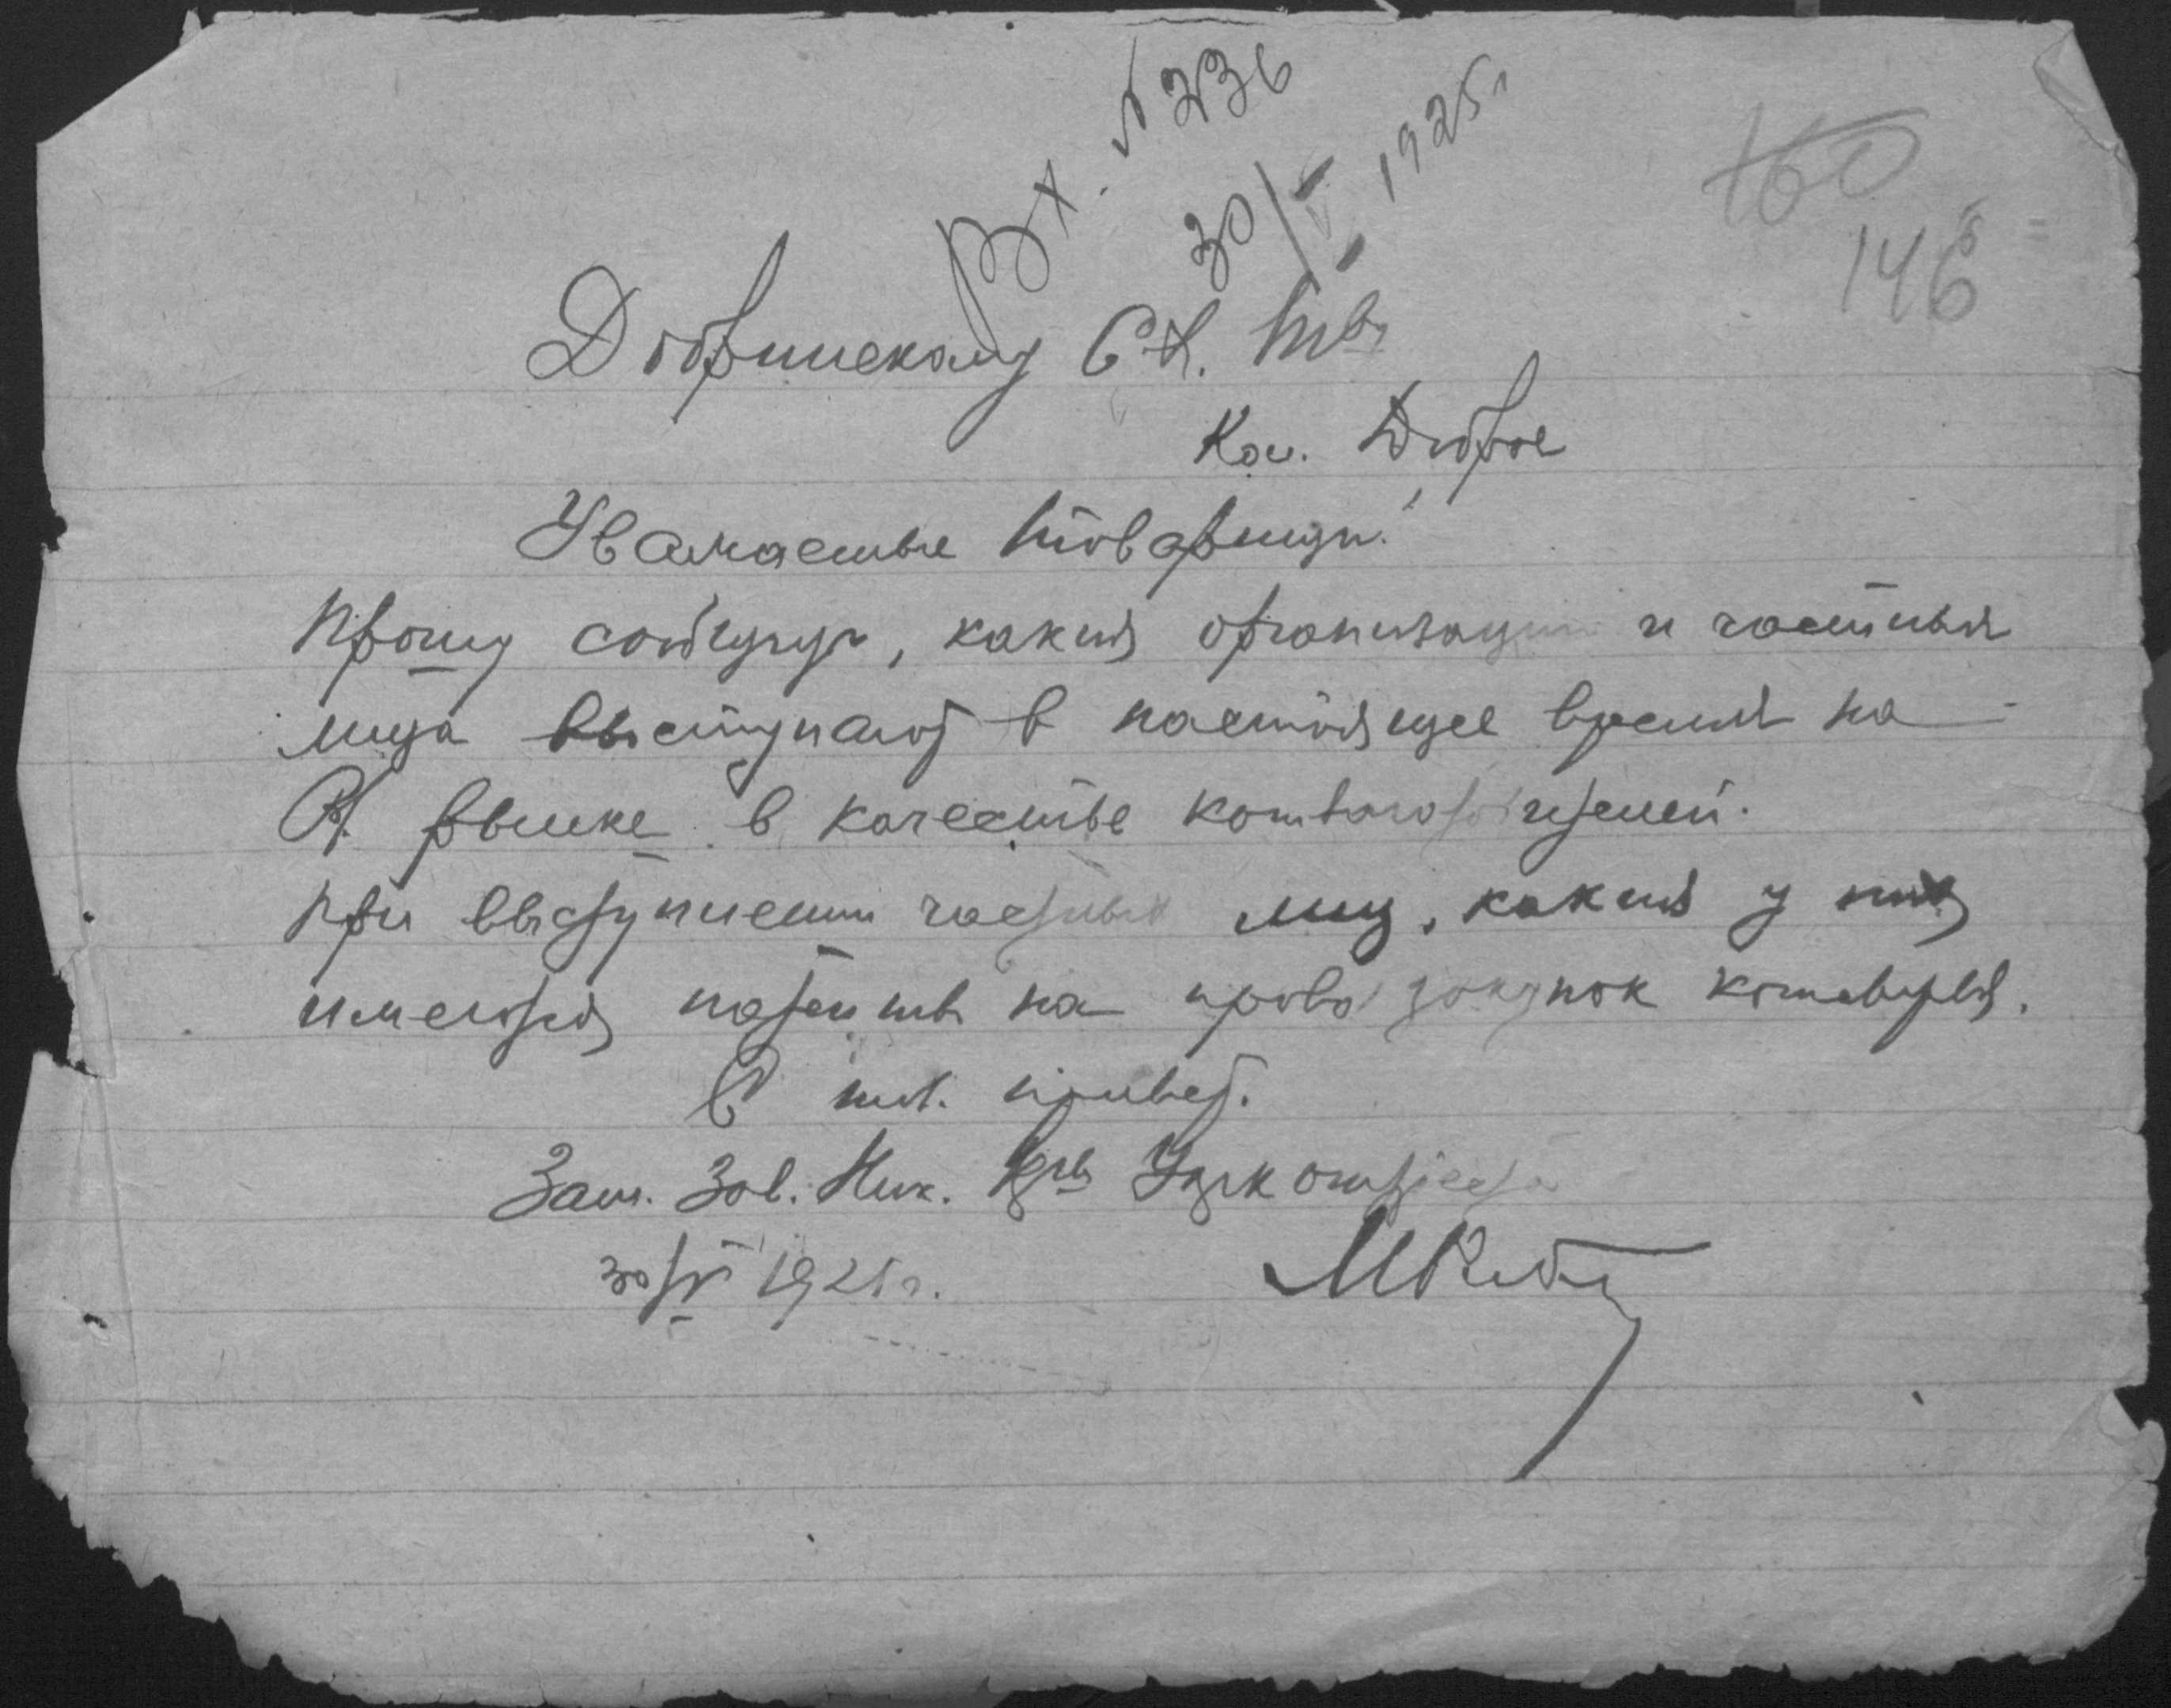 Вх. № 236
30/V 1925г
160
146
Добринскому С.Х. Тву
Кол. Доброе
Уважаемые товарищи!
Прошу сообщить, какия организации и частныя
лица выступают в настоящее время на
рынке в качестве
При выступлении частных лиц, какия у них
имеются патенты на право закупок
С тов. привет.
Зам. Зав. Ник.
30/V 1925г.